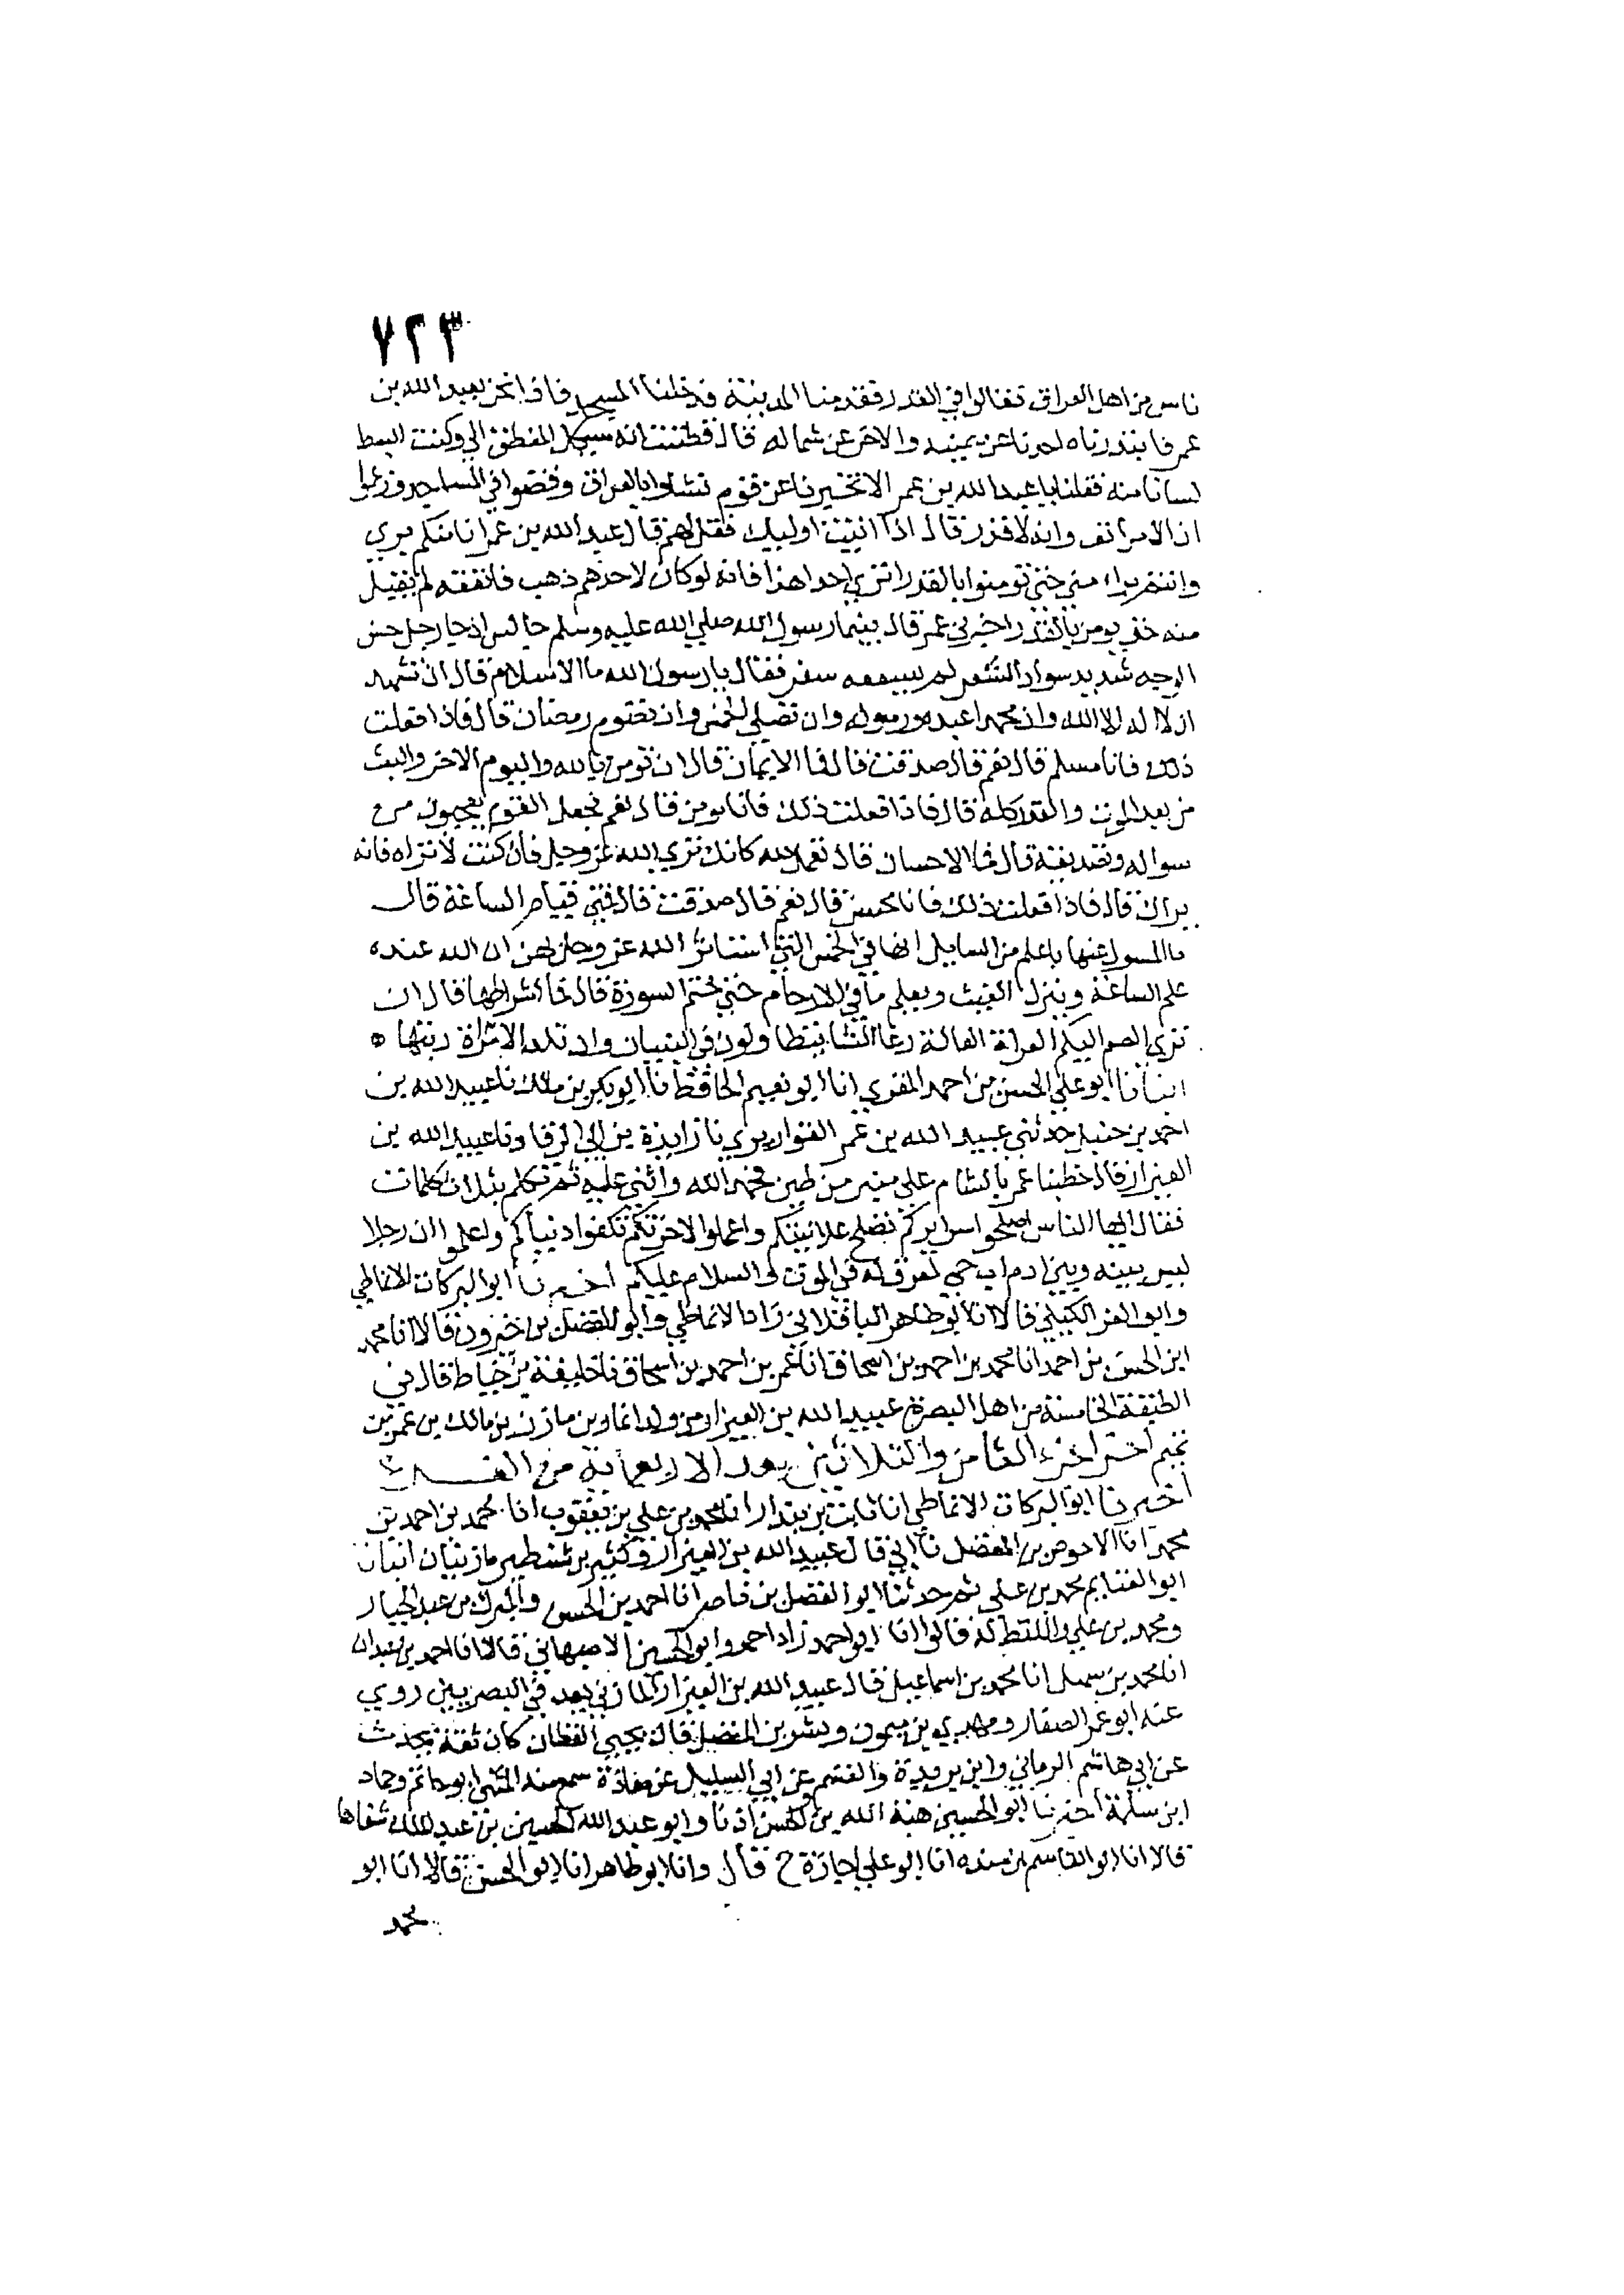 ٧٢٣
ناس من اهل العراق تغالوا في القدر فقدمنا المدينة فدخلنا المسجد فاذا نحن بعبد الله بن
عمر فابتدرناه احدنا عن يمينه والاخر عن شماله قال فظننت انه سيكل المنطق الي وكنت ابسط
لسانا منه فقلنا يا عبد الله بن عمر الا تخبرنا عن قوم نشاوا بالعراق وقصوا في المساجد وزعموا
ان الامر انف وانه لا قدر قال اذا اتيت اوليك فقل لهم قال عبد الله بن عمر انا منكم بري
وانتم براء مني حتي تومنوا بالقدر اتري احدا هذا فانه لوكان لاحدهم ذهب فانفقه لم يقبل
منه حتي يومن بالقدر اخبرني عمر قال بينما رسول الله صلي الله عليه وسلم جالس اذ جا رجل حسن
الوجه شديد سواد الشعر لم يبيبعه سفر فقال يا رسول الله ما الاسلام قال ان تشهد
ان لا اله الا الله وان محمدا عبده ورسوله وان تصلي الخمس وان تصوم رمضان قال فاذا فعلت
ذلك فانا مسلم قال نعم قال صدقت قال فما الايمان قال ان تومن بالله واليوم الاخر والبعث
من بعد الموت والقدر كله قال فاذا فعلت ذلك فانا مومن قال نعم فجعل القوم يعجبون من
سواله وتصديقه قال فما الاحسان قال تعمل لله كانك تري الله عز وجل فان كنت لا تراه فانه
يراك قال فاذا فعلت ذلك فانا محسن قال نعم قال صدقت قال فمتي قيام الساعة قال
ما المسول عنها باعلم من السايل انها في الخمس التي استاثر الله عز وجل بهن ان الله عنده
علم الساعة وينزل الغيث ويعلم ما في الارحام حتي ختم السورة قال فما اشراطها قال ان
تري الصم البكم العراة العالة رعا الشا يتطاولون في البنيان وان تلد الامراة ربتها ه
انبانا ابو علي الحسن بن احمد المقري انا ابو نعيم الحافظ نا ابو بكر بن مالك نا عبد الله بن
احمد بن حنبل حدثني عبيد الله بن عمر القواريري نا زايدة بن ابي الرقاد نا عبيد الله بن
العيزار قال خطبنا عمر بالشام علي منبر من طين فحمد الله واثني عليه ثم تكلم بثلاث كلمات
فقال ايها الناس اصلحوا سرايركم تصلح علانيتكم واعملوا لاخرتكم تكفوا دنياكم واعلموا ان رجلا
ليس بينه وبين ادم اب حي لمعرق له في الموت والسلام عليكم اخبرنا ابو البركات الانماطي
وابو العز الكيلي قالا انا ابو طاهر الباقلاني زاد الانماطي وابو الفضل بن خيرون قالا انا محمد
ابن الحسن بن احمد انا محمد بن احمد بن اسحاق انا عمر بن احمد بن اسحاق نا خليفة بن خياط قال في
الطبقة الخامسة من اهل البصرة عبيد الله بن العيزار من ولد انمار بن مازن بن مالك بن عمر بن
تميم اخر الجزء الثامن والثلاثين بعد الاربعماية من الفرع
اخبرنا ابو البركات الانماطي انا ثابت بن بندار انا محمد بن علي بن يعقوب انا محمد بن احمد بن
محمد انا الاحوص بن المفضل نا ابي قال عبيد الله بن العيزار وكثير بن شنظير مازنيان انبانا
ابو الغنايم محمد بن علي ثم حدثنا ابو الفضل بن ناصر انا احمد بن الحسن والمبارك بن عبد الجبار
ومحمد بن علي واللفظ له قالوا انا ابو احمد زاد احمد وابو الحسين الاصبهاني قالا انا احمد بن عبدان
انا محمد بن سهل انا محمد بن اسماعيل قال عبيد الله بن العيزار المازني يعد في البصريين روي
عنه ابو عمر الصفار ومهدي بن ميمون وبشر بن المفضل قال يحيي القطان كان ثقة يحدث
عن ابي هاشم الرماني وابن بريدة والقسم عن ابي السليل عن معاذة سمع منه المثني ابو حاتم وحماد
ابن سلمة اخبرنا ابو الحسين هبة الله بن الحسن اذنا وابو عبد الله الحسين بن عبد الملك شفاها
قالا انا ابو القاسم بن منده انا ابو علي اجازة ح قال وانا ابو طاهر انا ابو الحسن قالا انا ابو
محمد